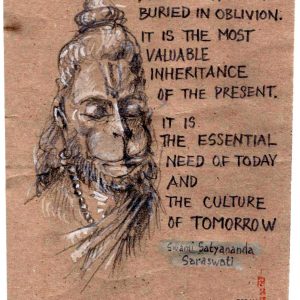 BURIED IN OBLIVION.
IT IS THE MOST
VALUABLE
INHERITANCE
OF THE PRESENT.
IT IS
THE ESSENTIAL
NEED OF TODAY
AND
THE CULTURE
OF TOMORROW
Swami Satyananda
Saraswati